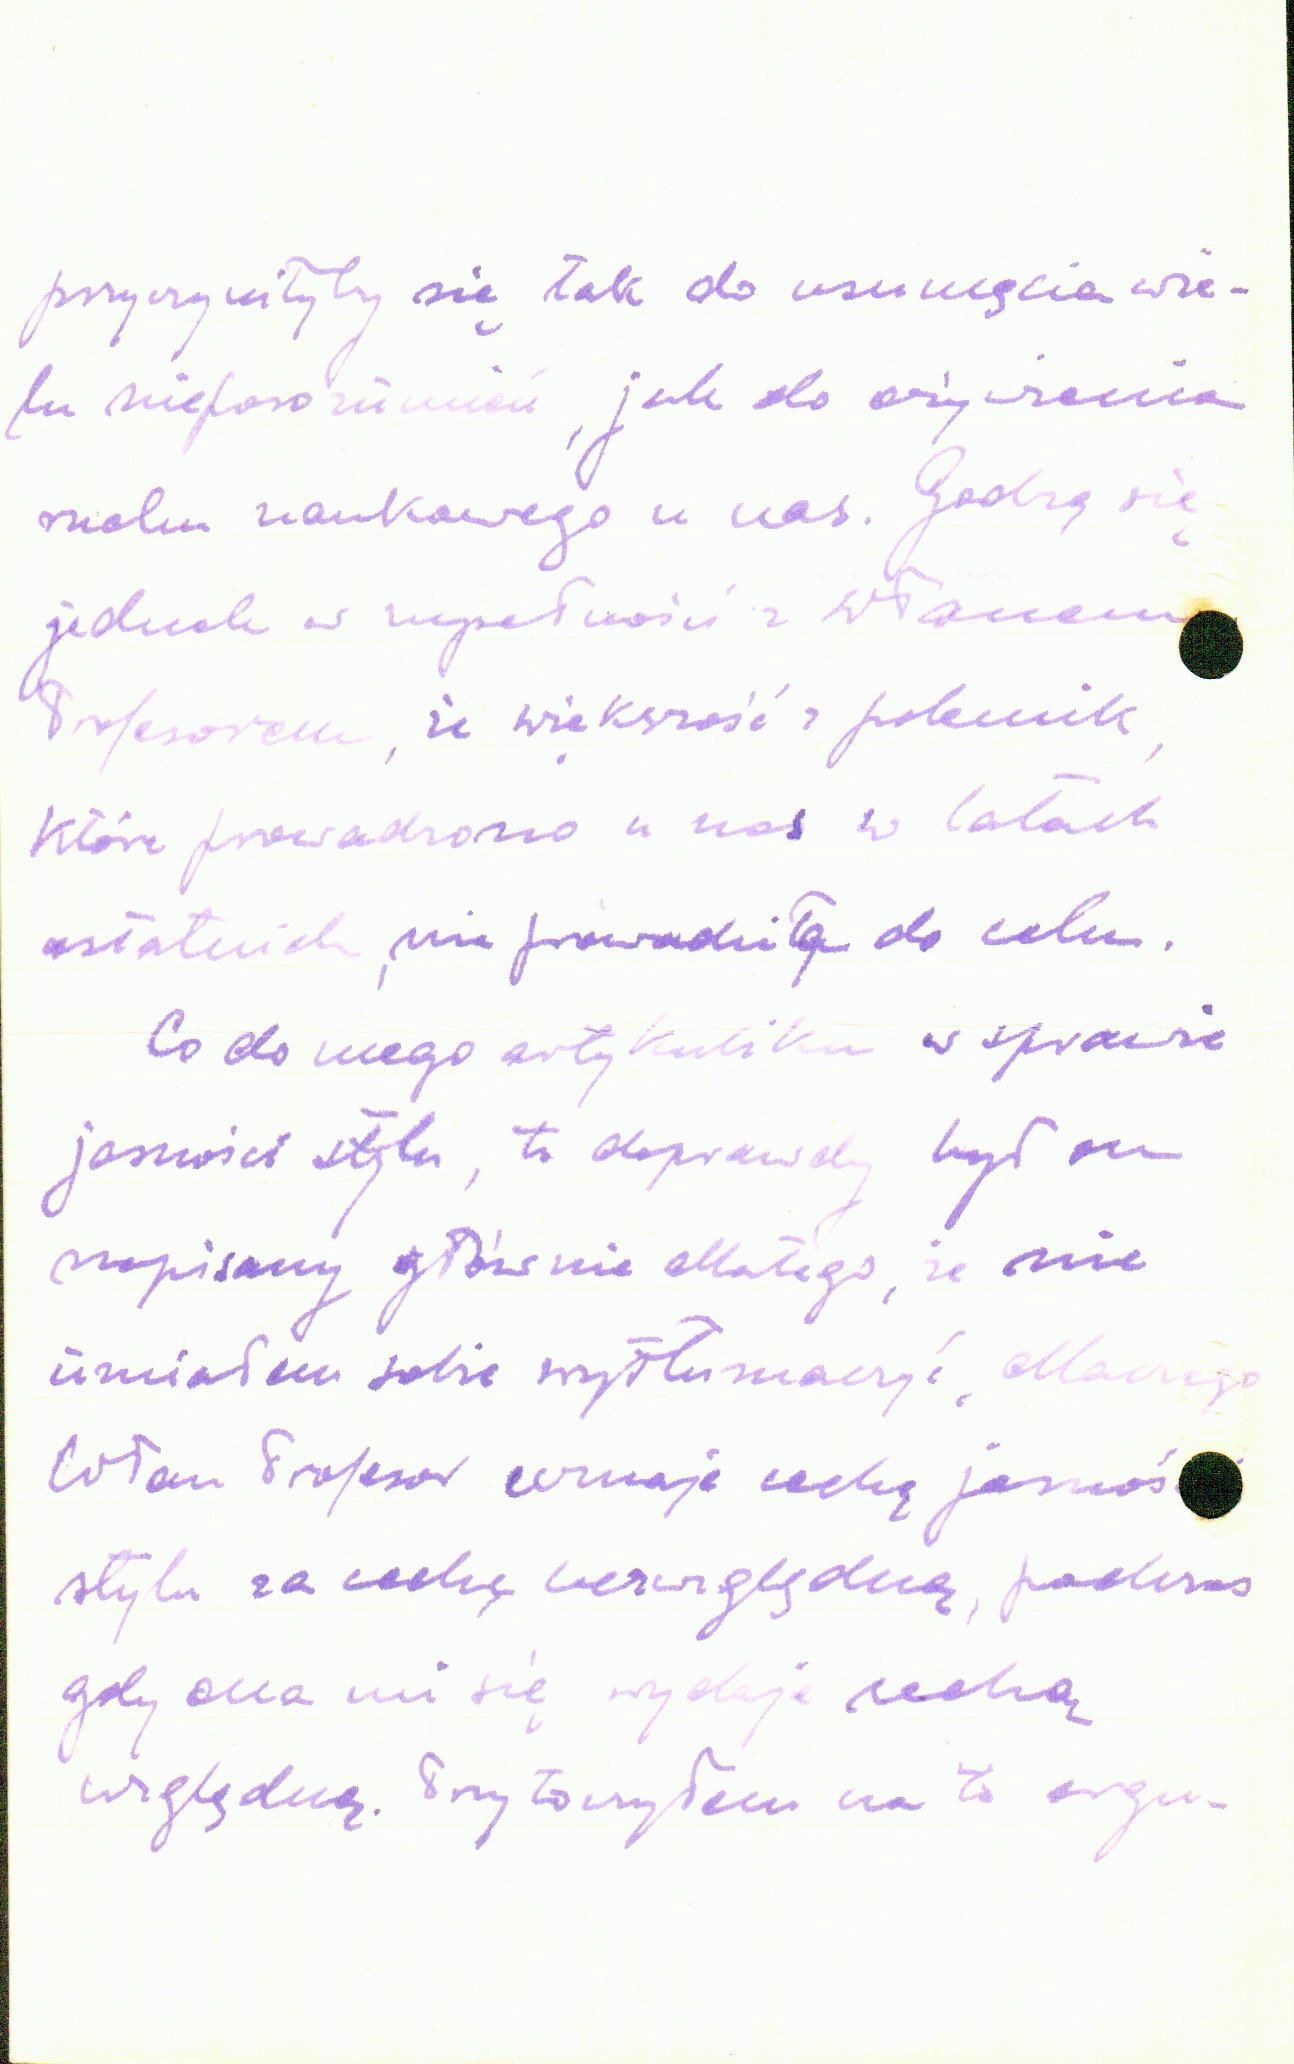 przyczyniłyby się tak do usunięcia wie-
lu nieporozumień, jak do ożywienia
ruchu naukowego u nas. Godzę się
jednak w zupełności z WPanem
Profesorem, że większość z polemik,
które prowadzono u nas w latach
ostatnich, nie prowadziła do celu.
Co do mego artykuliku w sprawie
jasności stylu, to doprawdy był on
napisany głównie dlatego, że nie
umiałem sobie wytłumaczyć, dlaczego
WPan Profesor uznaje cechę jasności
stylu za cechę bezwzględną, podczas
gdy ona mi się wydaje cechą
względną. Przytoczyłem na to argu-